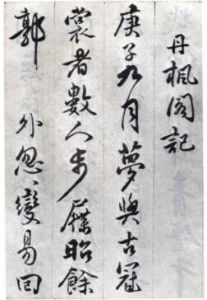 丹楓閣記
庚子九月夢與古冠
裳者數人步屧昭餘
郭外忽忽變易回